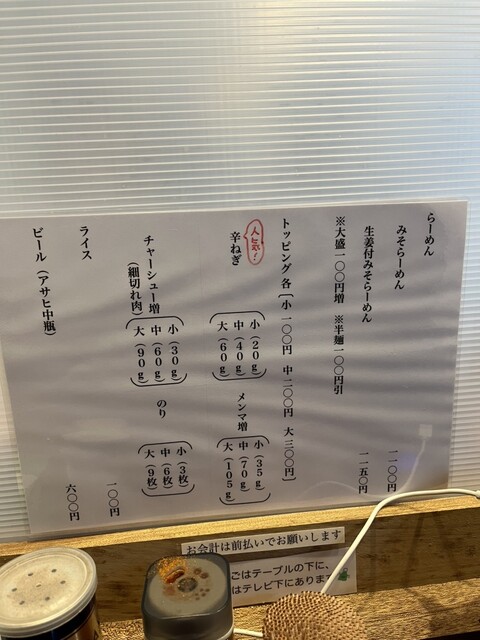 らーめん
みそらーめん 一一〇〇円
生姜付みそらーめん 一一五〇円
※大盛一〇〇円増 ※半麺一〇〇円引
トッピング 各〔小 一〇〇円 中 二〇〇円 大 三〇〇円〕
人気!
辛ねぎ
小(20g)
中(40g)
大(60g)
メンマ増
小(35g)
中(70g)
大(105g)
チャーシュー増
(細切れ肉)
小(30g)
中(60g)
大(90g)
のり
小(3枚)
中(6枚)
大(9枚)
ライス 一〇〇円
ビール(アサヒ中瓶) 六〇〇円
お会計は前払いでお願いします
ごはテーブルの下に、
はテレビ下にあります